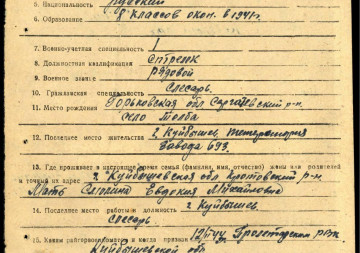 5. Национальность русский
6. Образование 8 классов окон. в 1941 г.
7. Военно-учетная специальность 1
8. Должностная квалификация стрелок
9. Военное звание рядовой
10. Гражданская специальность слесарь
11. Место рождения Горьковская обл Сергачевский р-н
село
12. Последнее место жительства г Куйбышев, территория
завода 693.
13. Где проживает в настоящее время семья (фамилия, имя, отчество) жены или родителей
и точный их адрес г Куйбышевская обл Кротовский р-н
Мать Евдокия Михайловна
14. Последнее место работы и должность г Куйбышев,
слесарь
15. Каким райгорвоенкоматом и когда призван Пролетарским рвк
Куйбышевской обл